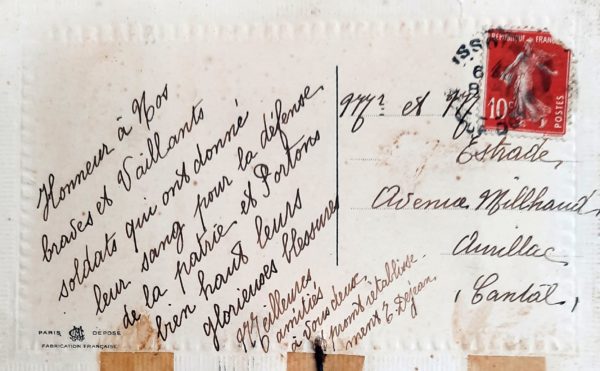 Honneur à Nos
braves et Vaillants
soldats qui ont donné
leur sang pour la défense
de la patrie et Portons
bien haut leurs
glorieuses blessures
Meilleures
amitiés
à vous deux,
prompt rétablisse-
ment E. Dejean
Mr et
Estrade,
Avenue Millhaud,
Aurillac
(Cantal)
REPUBLIQUE FRANÇAISE
10c
POSTES
ISSO
PARIS DEPOSE
FABRICATION FRANÇAISE